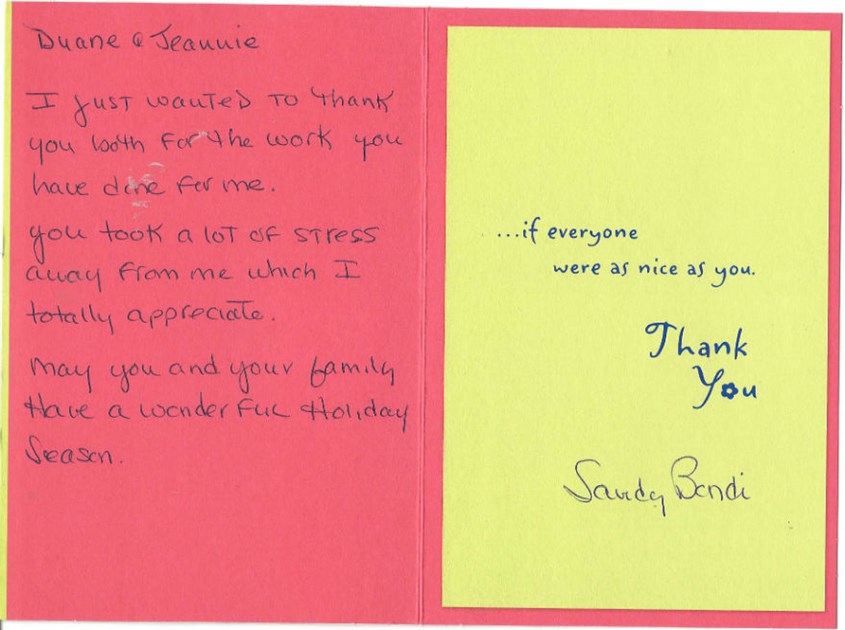 Duane & Jeannie
I just wanted to thank
you both for the work you
have done for me.
You took a lot of stress
away from me which I
totally appreciate.
May you and your family
Have a wonderful Holiday
Season.
...if everyone
were as nice as you.
Thank
You
Sandy Bondi